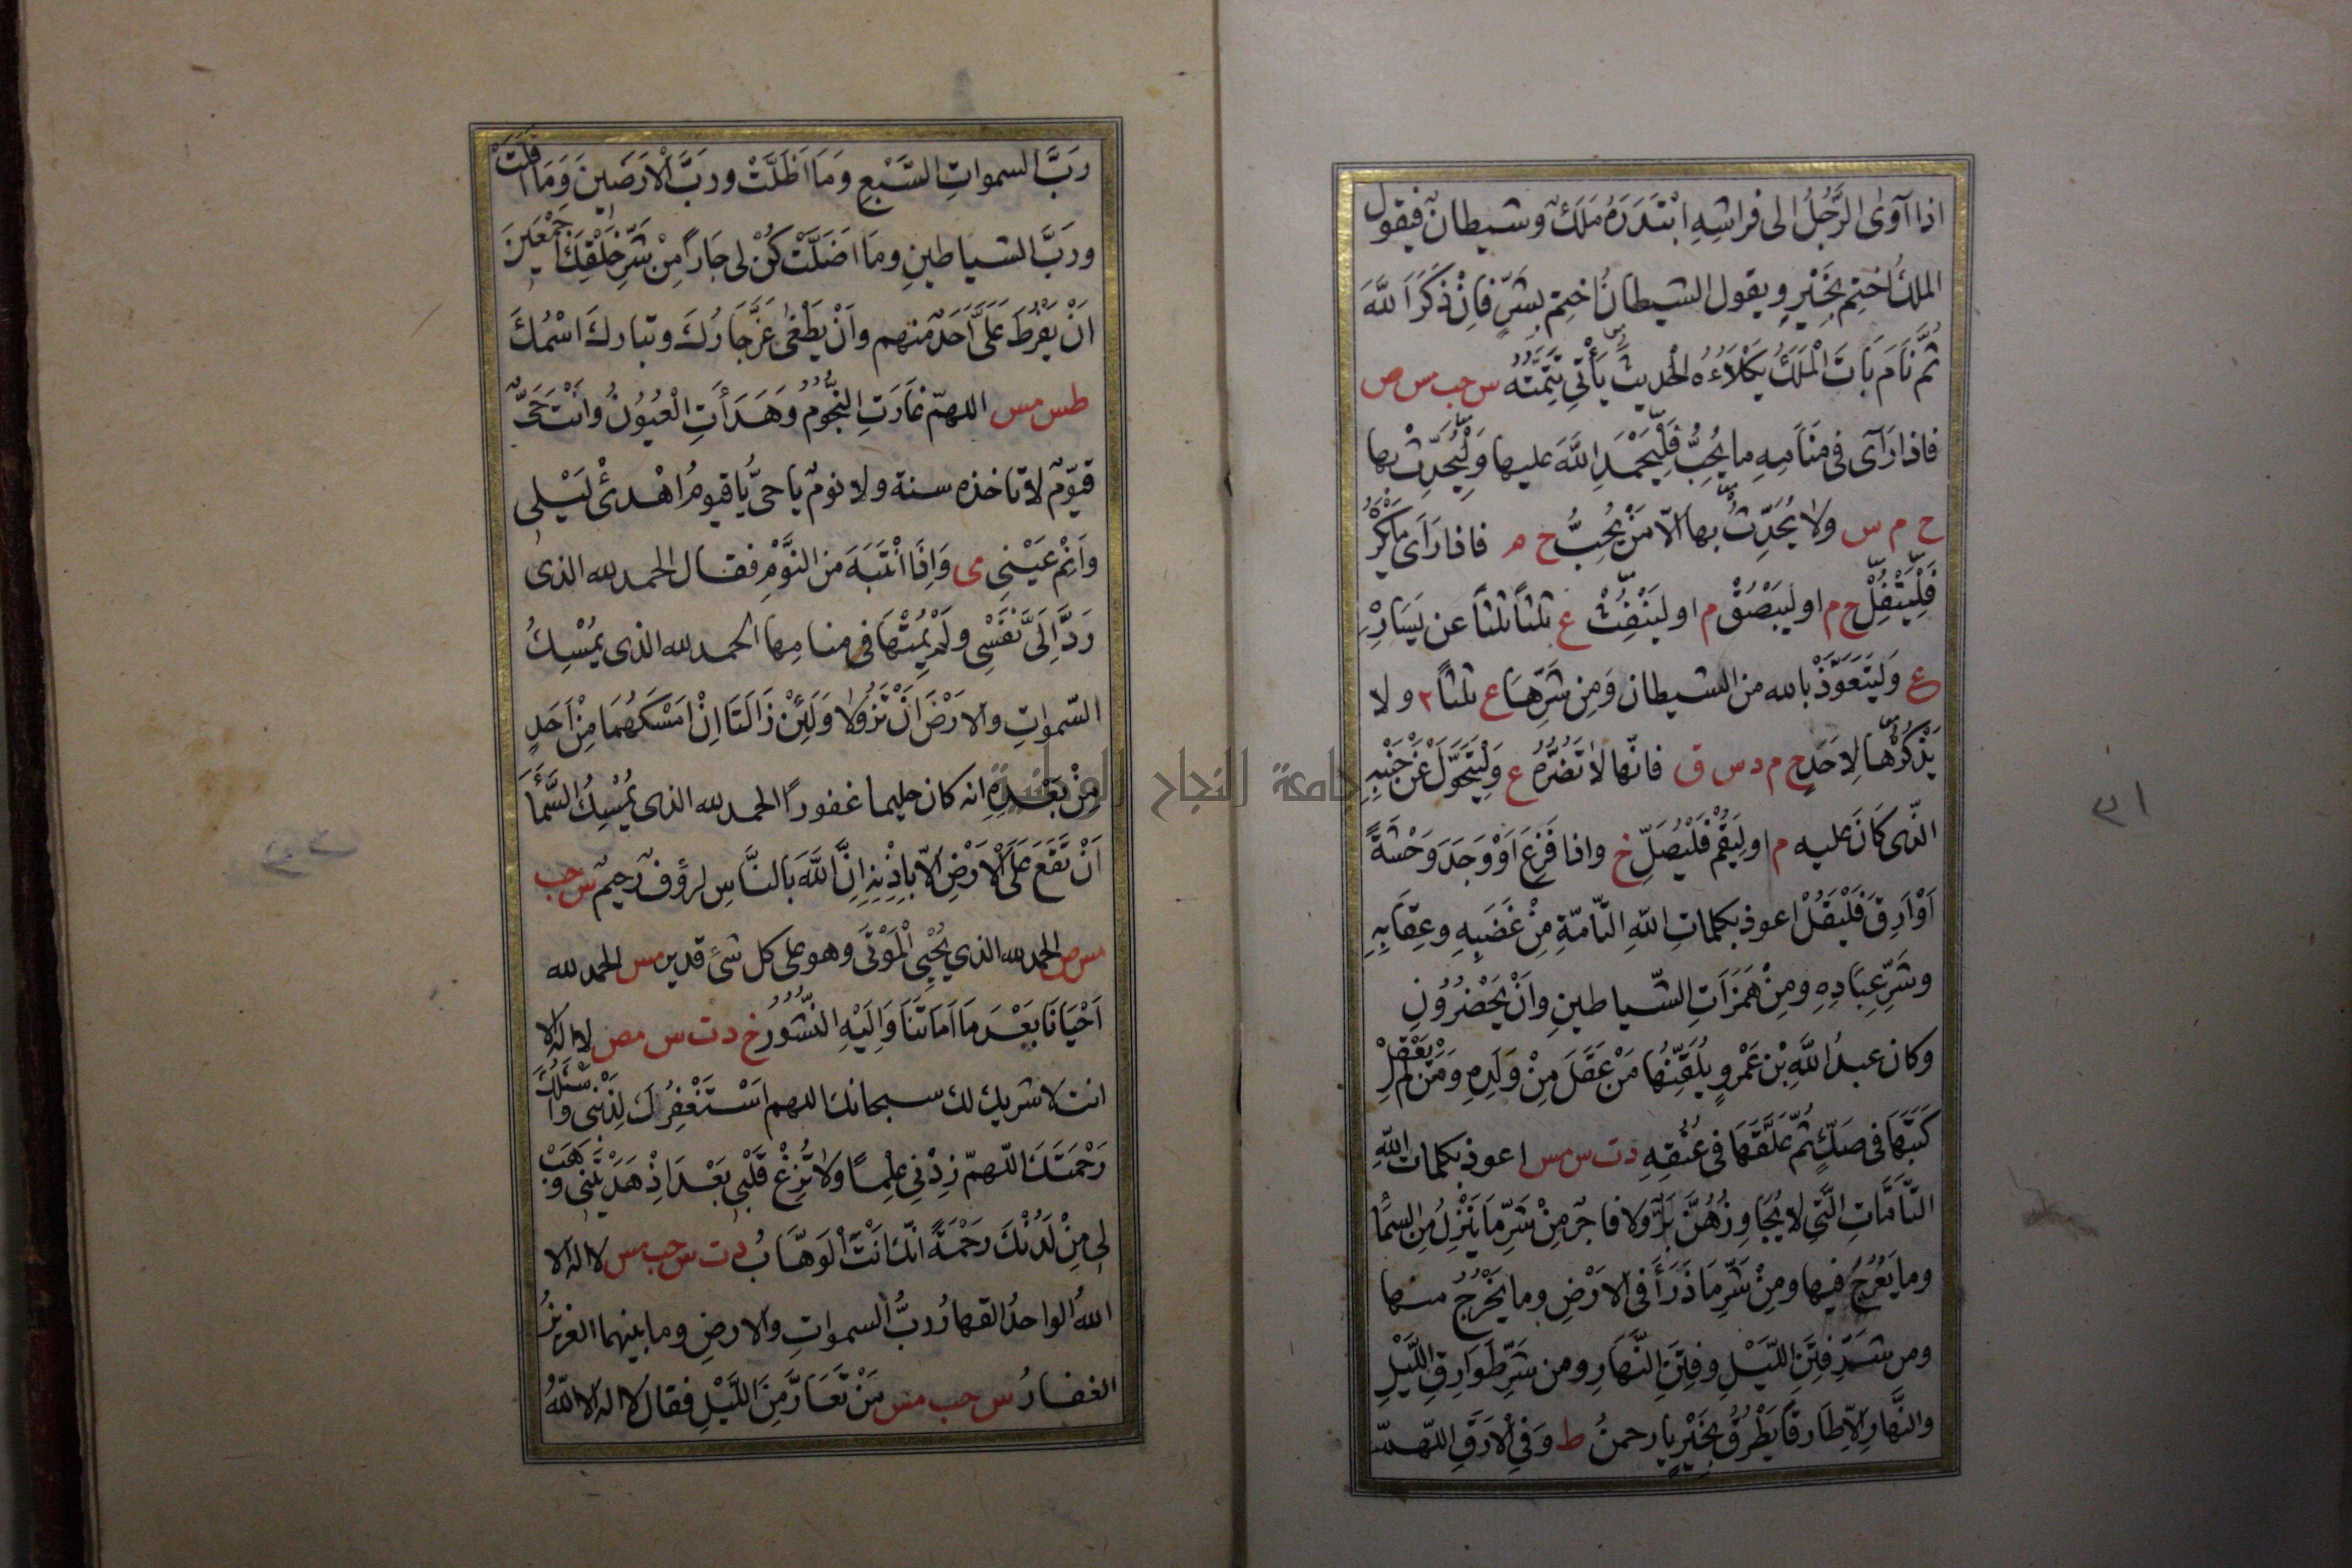 اذا آوَىٰ الرَّجُلُ الى فراشِهِ ابْتَدَرَهُ مَلَكٌ وشيطانٌ فيقول
الملكُ اختِم بِخَيْرٍ ويقول الشيطانُ اختِم بِشَرٍّ فاِنْ ذَكَرَ اللهَ
ثُمَّ نَامَ بَاتَ الْمَلَكُ يَكْلَاُءُه الْحديث يَأْتِي تَتِمَّتُهُ س حب مس ص
فاذا رَآى فى مَنَامِهِ ما يُحِبُّ فَلْيَحْمَدِ اللهَ عليها وَلْيُحَدِّثْ بها
خ م س ولا يُحَدِّثُ بها اِلّا مَنْ يُحِبُّ خ م فاذا رَآى مَا يَكْرَهُ
فَلْيَتْفُلْ خ م او ليَبْصُقْ م او ليَنْفُثْ ع ثلثاً ثلثاً عن يَسَارِهِ
ع وَليَتَعَوَّذْ بالله من الشيطان وَمِن شَرِّهَا ع ثلثاً ٢ ولا
يَذْكُرْهَا لِاَحَدٍ خ م د س ق فانّها لَا تَضُرُّهُ ع وَلْيَتَحَوَّلْ عَنْ جَنْبِهِ
الَّذى كَانَ عليه م او ليَقُمْ فَلْيُصَلِّ خ واذا فَزِعَ اَوْ وَجَدَ وَحْشَةً
اَوْ اَرِقَ فَلْيَقُلْ اعوذ بكلماتِ اللهِ التّامّةِ مِنْ غَضَبِهِ وعِقَابِهِ
وشَرِّ عِبَادِهِ ومِنْ هَمَزَاتِ الشّياطينِ واَنْ يَحْضُرُونِ
وكان عبدُ اللهِ بْن عَمْرٍو يُلَقِّنُهَا مَنْ عَقَلَ مِنْ وَلَدِهِ وَمَنْ لَمْ يَعْقِلْ
كَتَبَهَا فى صَكٍّ ثُمَّ عَلَّقَهَا فى عُنُقِهِ د ت س مس اعوذ بكلمات اللهِ
التَّامَّاتِ الَّتى لا يُجَاوِزُهُنَّ بَرٌّ ولا فاجرٌ مِنْ شَرِّ مَا يَنْزِلُ مِنَ السماءِ
وما يَعْرُجُ فيها ومِنْ شَرِّ مَا ذَرَأَ فى الارْضِ وما يَخْرُجُ منها
ومن شَرِّ فِتَنِ اللَّيْلِ وفِتَنِ النَّهَارِ ومن شَرِّ طَوَارِقِ اللَّيْلِ
والنَّهارِ اِلّا طَارقًا يَطْرُقُ بِخَيْرٍ يا رحمنُ ط وَفِي الْارَقِ اللّهمّ
ا٥
رَبَّ السمواتِ السَّبْعِ وَمَا اَظَلَّتْ ورَبَّ الْاَرَضِينَ وَمَا اَقَلَّتْ
ورَبَّ الشياطينِ ومَا اضَلَّتْ كُنْ لى جَاراً مِنْ شَرِّ خَلْقِكَ اَجْمَعِينَ
اَنْ يَفْرُطَ عَلَىَّ اَحَدٌ منهم واَنْ يَطْغىٰ عَزَّ جَارُكَ وتبارك اسْمُكَ
طس مس اللهمّ غَارَتِ النُّجُومُ وَهَدَأَتِ الْعُيُونُ واَنْتَ حَىٌّ
قيّومٌ لا تاخذه سنة ولا نومٌ يا حىُّ يا قيومُ اهْدِئْ لَيْلى
وَاَنِمْ عَيْنِى مى وَاِذَا انْتَبَهَ مَنَ النَّوْمِ فقال الحمد لله الذى
رَدَّ اِلَىَّ نَفْسِى ولَمْ يُمِتْهَا فى منامِها الحمد لله الذى يُمْسِكُ
السّمٰواتِ والارْضَ اَنْ تَزُولَا وَلَئِنْ زَالَتَا اِنْ اَمْسَكَهُمَا مِنْ اَحَدٍ
مِنْ بَعْدِهِ انه كان حليما غفوراً الحمد لله الذى يُمْسِكُ السَّمَاءَ
اَنْ تَقَعَ عَلَى الْاَرْضِ اِلّا بِاِذْنِهِ اِنَّ اللهَ بالنَّاسِ لرؤفٌ رحيمٌ س حب
مس ص الحمد لله الذى يُحْيِى الْمَوْتَى وهو على كل شئ قدير مس الحمد لله
اَحْيَانَا بَعْدَ مَا اَمَاتَنَا وَاِلَيْهِ النُّشُورُ خ د ت س مص لا اله الا
انت لا شريك لك سبحانك اللهم اَسْتَغْفِرُكَ لِذَنْبِى واَسْئَلُكَ
رَحْمَتَكَ اللّهمّ زِدْنِى عِلْمًا ولَا تُزِغْ قَلْبِى بَعْدَ اِذْ هَدَيْتَنِى وَهَبْ
لِى مِنْ لَدُنْكَ رَحْمَةً انّك اَنْتَ الْوَهَّابُ د ت س حب مس لا اله الا
اللهُ الواحدُ القهارُ ربُّ السمواتِ والارضِ وما بينهما العزيزُ
الغفارُ س حب مس مَنْ تَعَارَّ مِنَ اللَّيْلِ فقال لا اله الا اللهُ
جامعة النجاح الوطنية